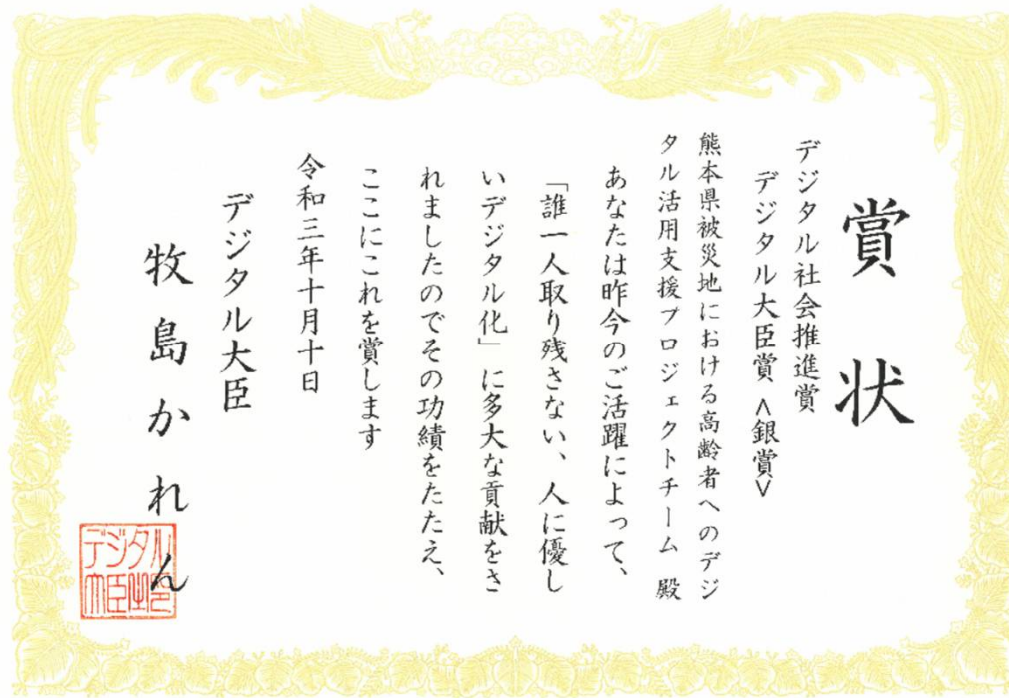 賞状
デジタル社会推進賞
デジタル大臣賞<銀賞>
熊本県被災地における高齢者へのデジ
タル活用支援プロジェクトチーム 殿
あなたは昨今のご活躍によって、
「誰一人取り残さない、人に優し
いデジタル化」に多大な貢献をさ
れましたのでその功績をたたえ、
ここにこれを賞します
令和三年十月十日
デジタル大臣
牧島かれん
デジタル
大臣之印